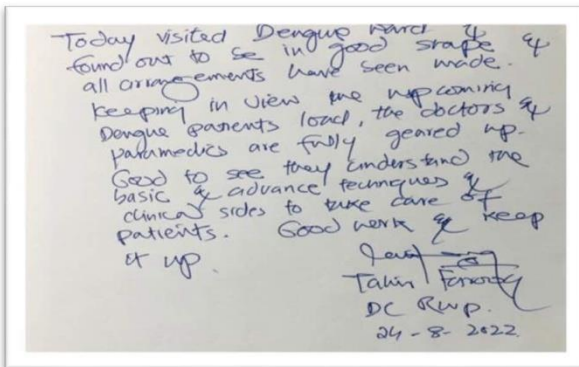 Today visited Dengue ward &
found out to be in good shape &
all arrangements have been made.
Keeping in view the upcoming
Dengue patients load, the doctors &
paramedics are fully geared up.
Good to see they understand the
basic & advance techniques &
clinical sides to take care of
patients. Good work & keep
it up.
Tahir Farooq
DC RWP.
24-8-2022